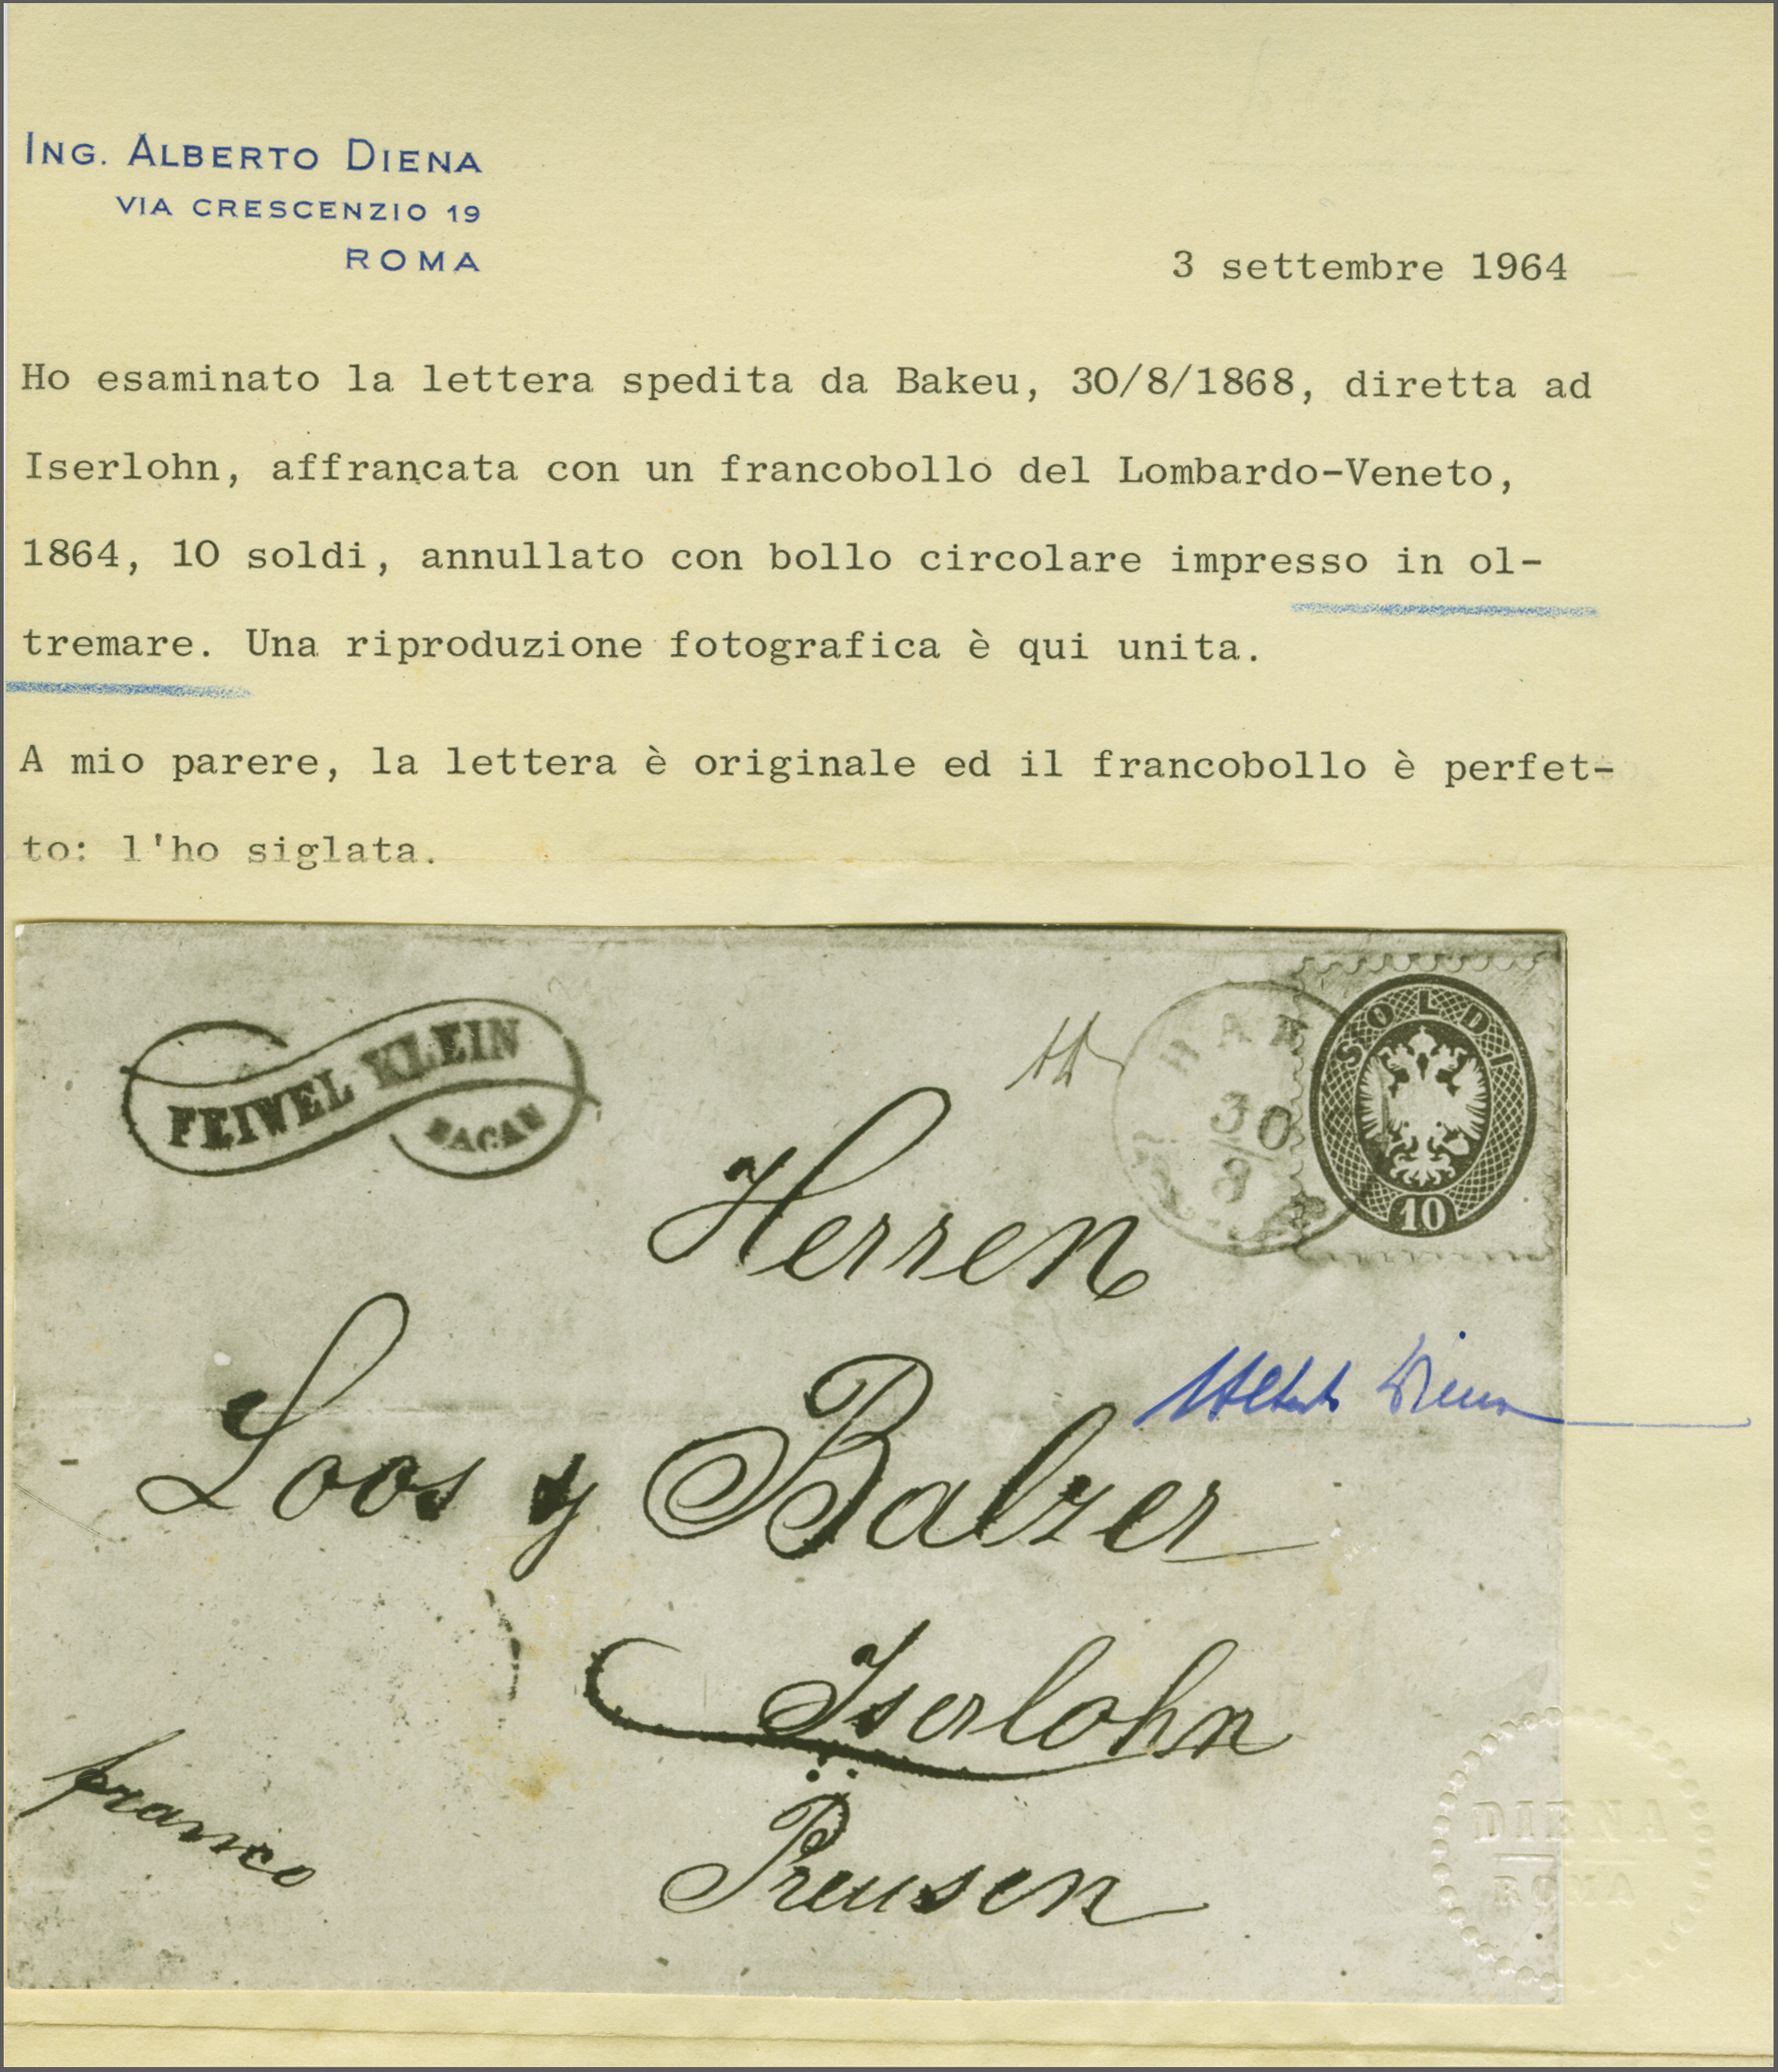 ING. ALBERTO DIENA
VIA CRESCENZIO 19
ROMA
3 settembre 1964
Ho esaminato la lettera spedita da Bakeu, 30/8/1868, diretta ad
Iserlohn, affrancata con un francobollo del Lombardo-Veneto,
1864, 10 soldi, annullato con bollo circolare impresso in ol-
tremare. Una riproduzione fotografica è qui unita.
A mio parere, la lettera è originale ed il francobollo è perfet-
to: l'ho siglata.
FEIWEL KLEIN
BACAU
30
8
SOLDI
10
Herren
Loos & Balzer
Alberto Diena
Iserlohn
Preusen
franco
DIENA
ROMA